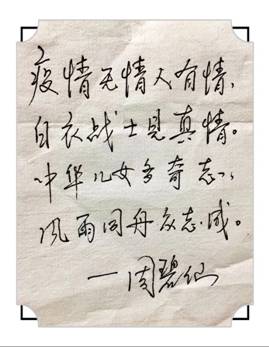 疫情无情人有情，
白衣战士见真情。
中华儿女多奇志，
风雨同舟众志成。
——周碧仙